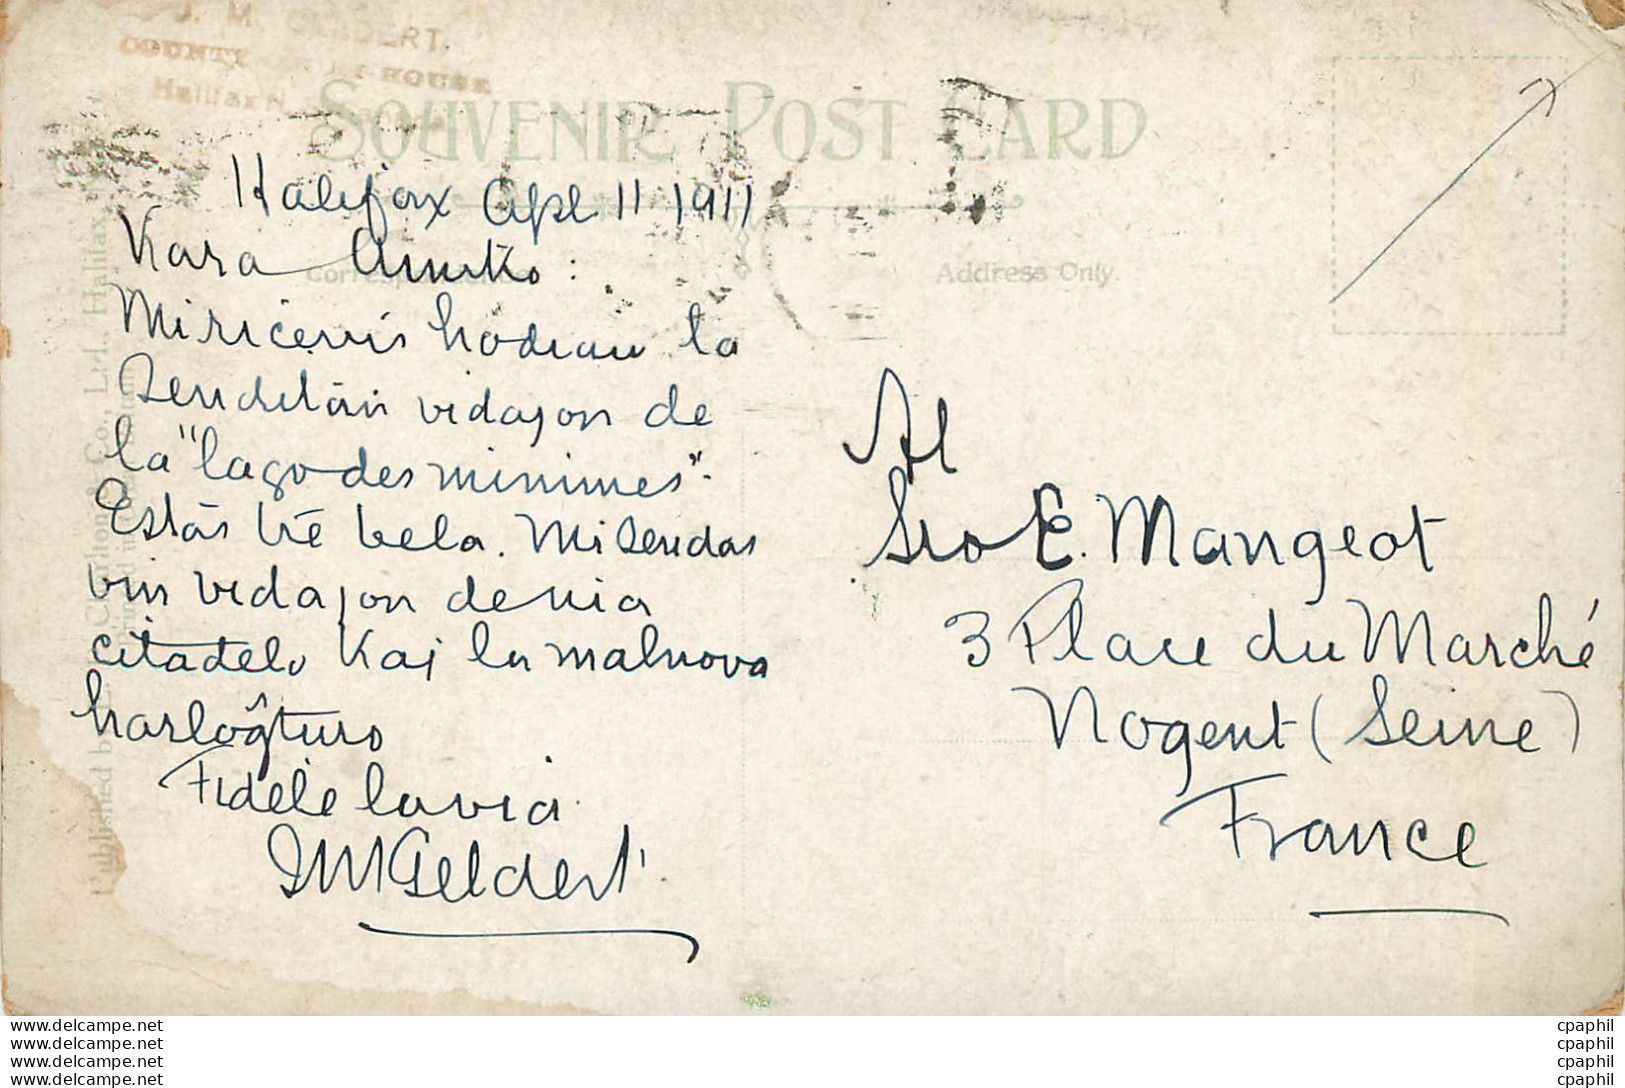 J. M. GELDERT.
COUNTY HOUSE
Halifax N.
SOUVENIR POST CARD
Halifax Apl 11 1911
Correspondence
Address Only.
Kara Amiko:
Mi ricevis hodiau la
senditan vidajon de
la "lago des minimes".
Estas tre bela. Mi sendas
vin vidajon de nia
citadelo kaj la malnova
horloĝturo
Fidele la via
JMGeldert
Al
Sro E. Mangeot
3 Place du Marché
Nogent (Seine)
France
Co., Ltd., Halifax
www.delcampe.net
www.delcampe.net
www.delcampe.net
www.delcampe.net
cpaphil
cpaphil
cpaphil
cpaphil